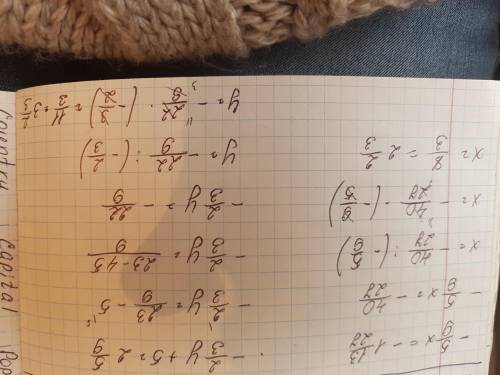 -5/9 x = -1 13/27
-5/9 x = -40/27
x = -40/27 : (-5/9)
x = -40/27 · (-9/5)
x = 8/3 = 2 2/3
-2/3 y + 5 = 2 5/9
-2/3 y = 23/9 - 5
-2/3 y = 23-45/9
-2/3 y = -22/9
y = -22/9 : (-2/3)
y = -22/9 · (-3/2) = 11/3 = 3 2/3
Country Capital Pop